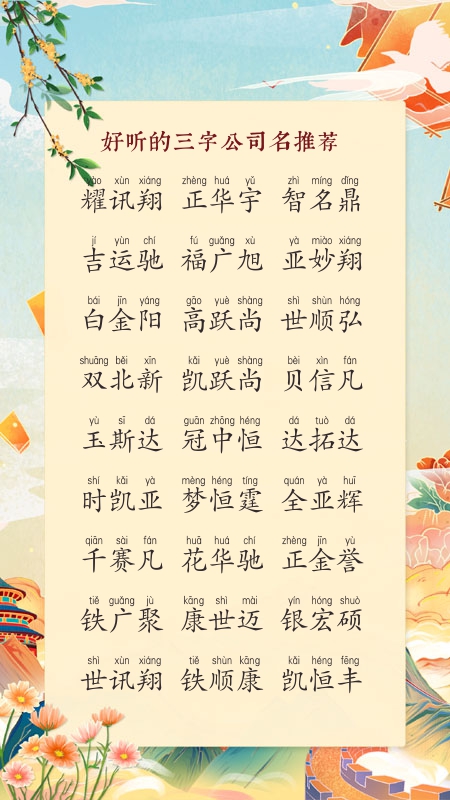 好听的三字公司名推荐
yào xùn xiáng zhèng huá yǔ zhì míng dǐng
耀讯翔 正华宇 智名鼎
jí yùn chí fú guǎng xù yà miào xiáng
吉运驰 福广旭 亚妙翔
bái jīn yáng gāo yuè shàng shì shùn hóng
白金阳 高跃尚 世顺弘
shuāng běi xīn kǎi yuè shàng bèi xìn fán
双北新 凯跃尚 贝信凡
yù sī dá guān zhōng héng dá tuò dá
玉斯达 冠中恒 达拓达
shí kǎi yà mèng héng tíng quán yà huī
时凯亚 梦恒霆 全亚辉
qiān sài fán huā huá chí zhèng jīn yù
千赛凡 花华驰 正金誉
tiě guǎng jù kāng shì mài yín hóng shuò
铁广聚 康世迈 银宏硕
shì xùn xiáng tiě shùn kāng kǎi héng fēng
世讯翔 铁顺康 凯恒丰